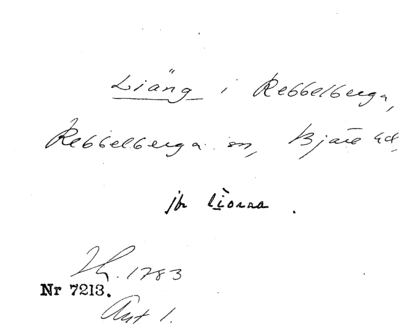 Liäng i Rebbelberga,
Rebbelberga sn, Bjäre hd,
jfr lìoraa.
Lh. 1783
Nr 7213.
Avt 1.